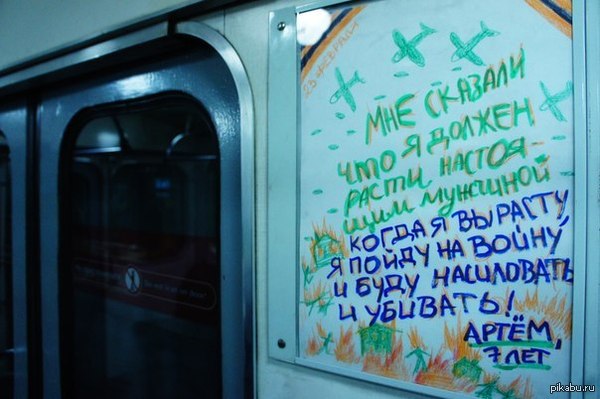 23 ФЕВРАЛЯ
МНЕ СКАЗАЛИ
ЧТО Я ДОЛЖЕН
РАСТИ НАСТОЯ-
ЩИМ МУЖЧИНОЙ
КОГДА Я ВЫРАСТУ,
Я ПОЙДУ НА ВОЙНУ
И БУДУ НАСИЛОВАТЬ
И УБИВАТЬ!
АРТЁМ,
7 ЛЕТ
pikabu.ru